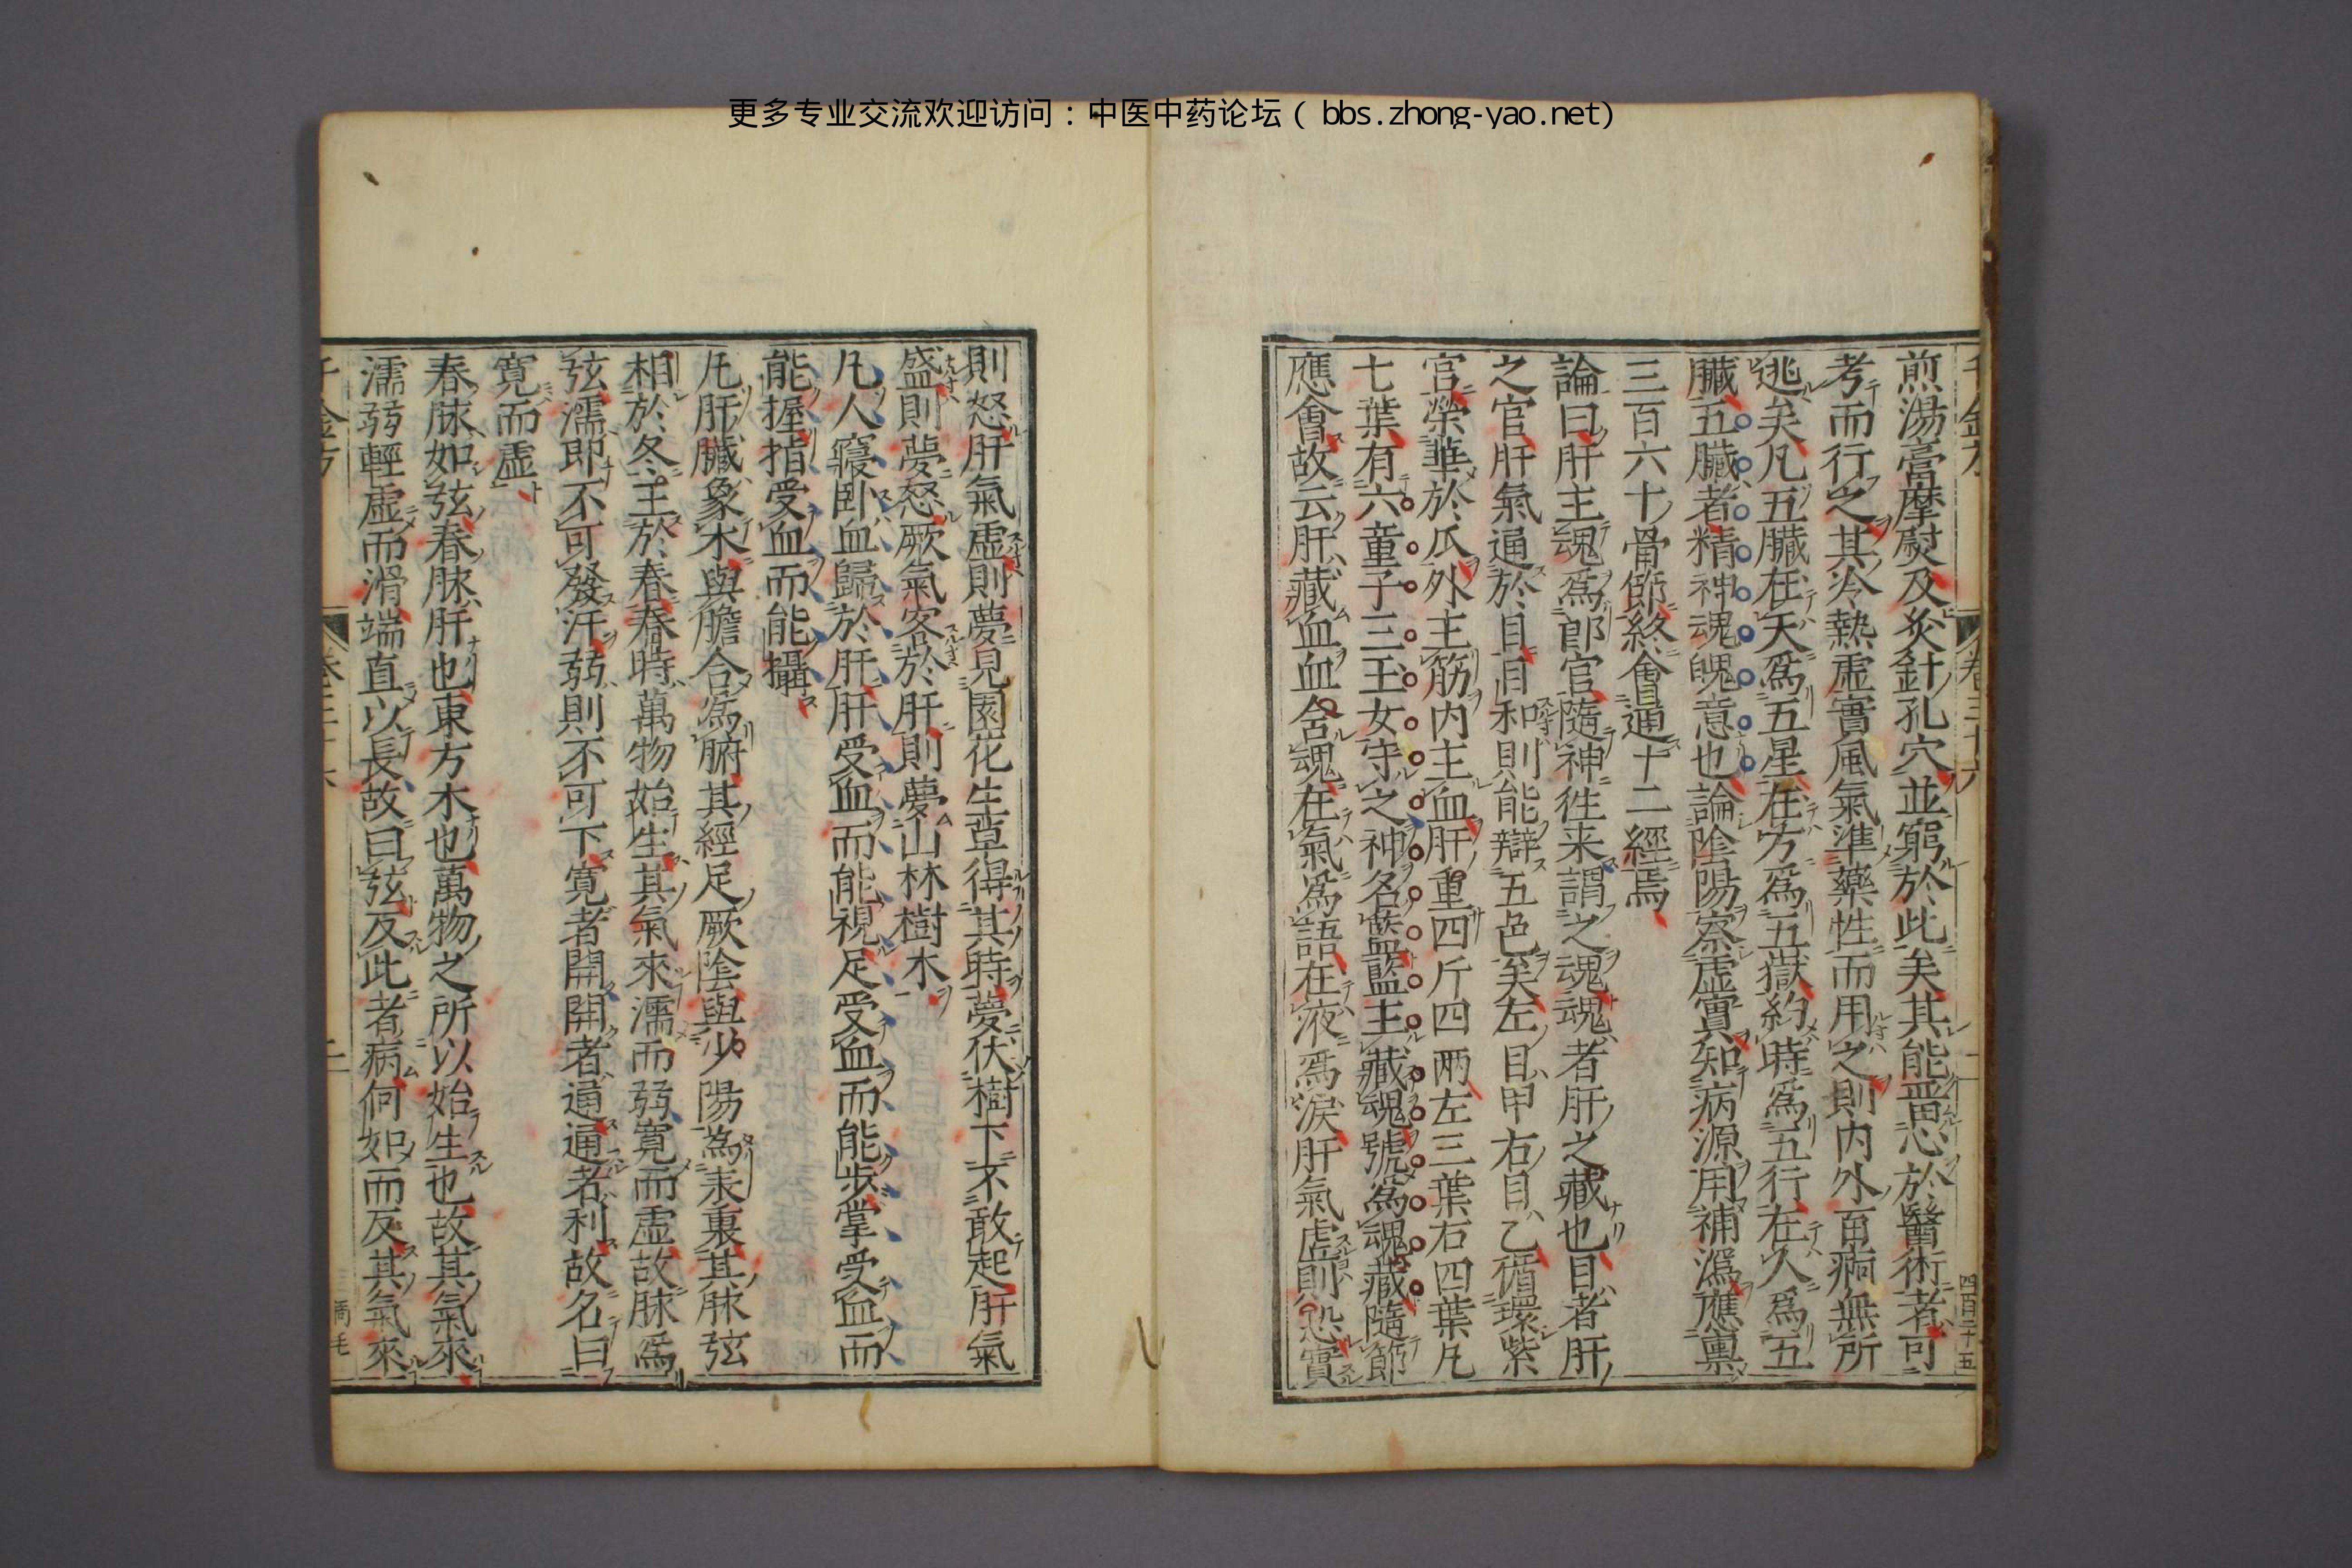 更多专业交流欢迎访问：中医中药论坛（bbs.zhong-yao.net）
煎湯膏摩熨及灸針孔穴並窮於此矣其能留心於醫術者可
考而行之其冷熱虛實風氣準藥性而用之則內外百病無所
逃矣凡五臟在天爲五星在方爲五嶽約時爲五行在人爲五
臟五臟者精神魂魄意也論陰陽察虛實知病源用補瀉應稟
三百六十骨節終會通十二經焉
論曰肝主魂爲郎官隨神往来謂之魂魂者肝之藏也目者肝
之官肝氣通於目目和則能辯五色矣左目甲右目乙循環紫
宮榮華於爪外主筋內主血肝重四斤四两左三葉右四葉凡
七葉有六童子三玉女守之神名藍藍主藏魂號爲魂藏隨節
應會故云肝藏血血舍魂在氣爲語在液爲淚肝氣虛則恐實
則怒肝氣虛則夢見園花生草得其時夢伏樹下不敢起肝氣
盛則夢怒厥氣客於肝則夢山林樹木
凡人寢臥血歸於肝肝受血而能視足受血而能步掌受血而
能握指受血而能攝
凡肝臟象木與膽合爲腑其經足厥陰與少陽爲表裏其脉弦
相於冬王於春春時萬物始生其氣來濡而弱寬而虛故脉爲
弦濡即不可發汗弱則不可下寬者開開者通通者利故名曰
寬而虛
春脉如弦春脉肝也東方木也萬物之所以始生也故其氣來
濡弱輕虛而滑端直以長故曰弦反此者病何如而反其氣來